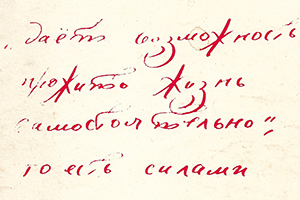 „даёт возможность
прожить жизнь
самостоятельно",
то есть силами